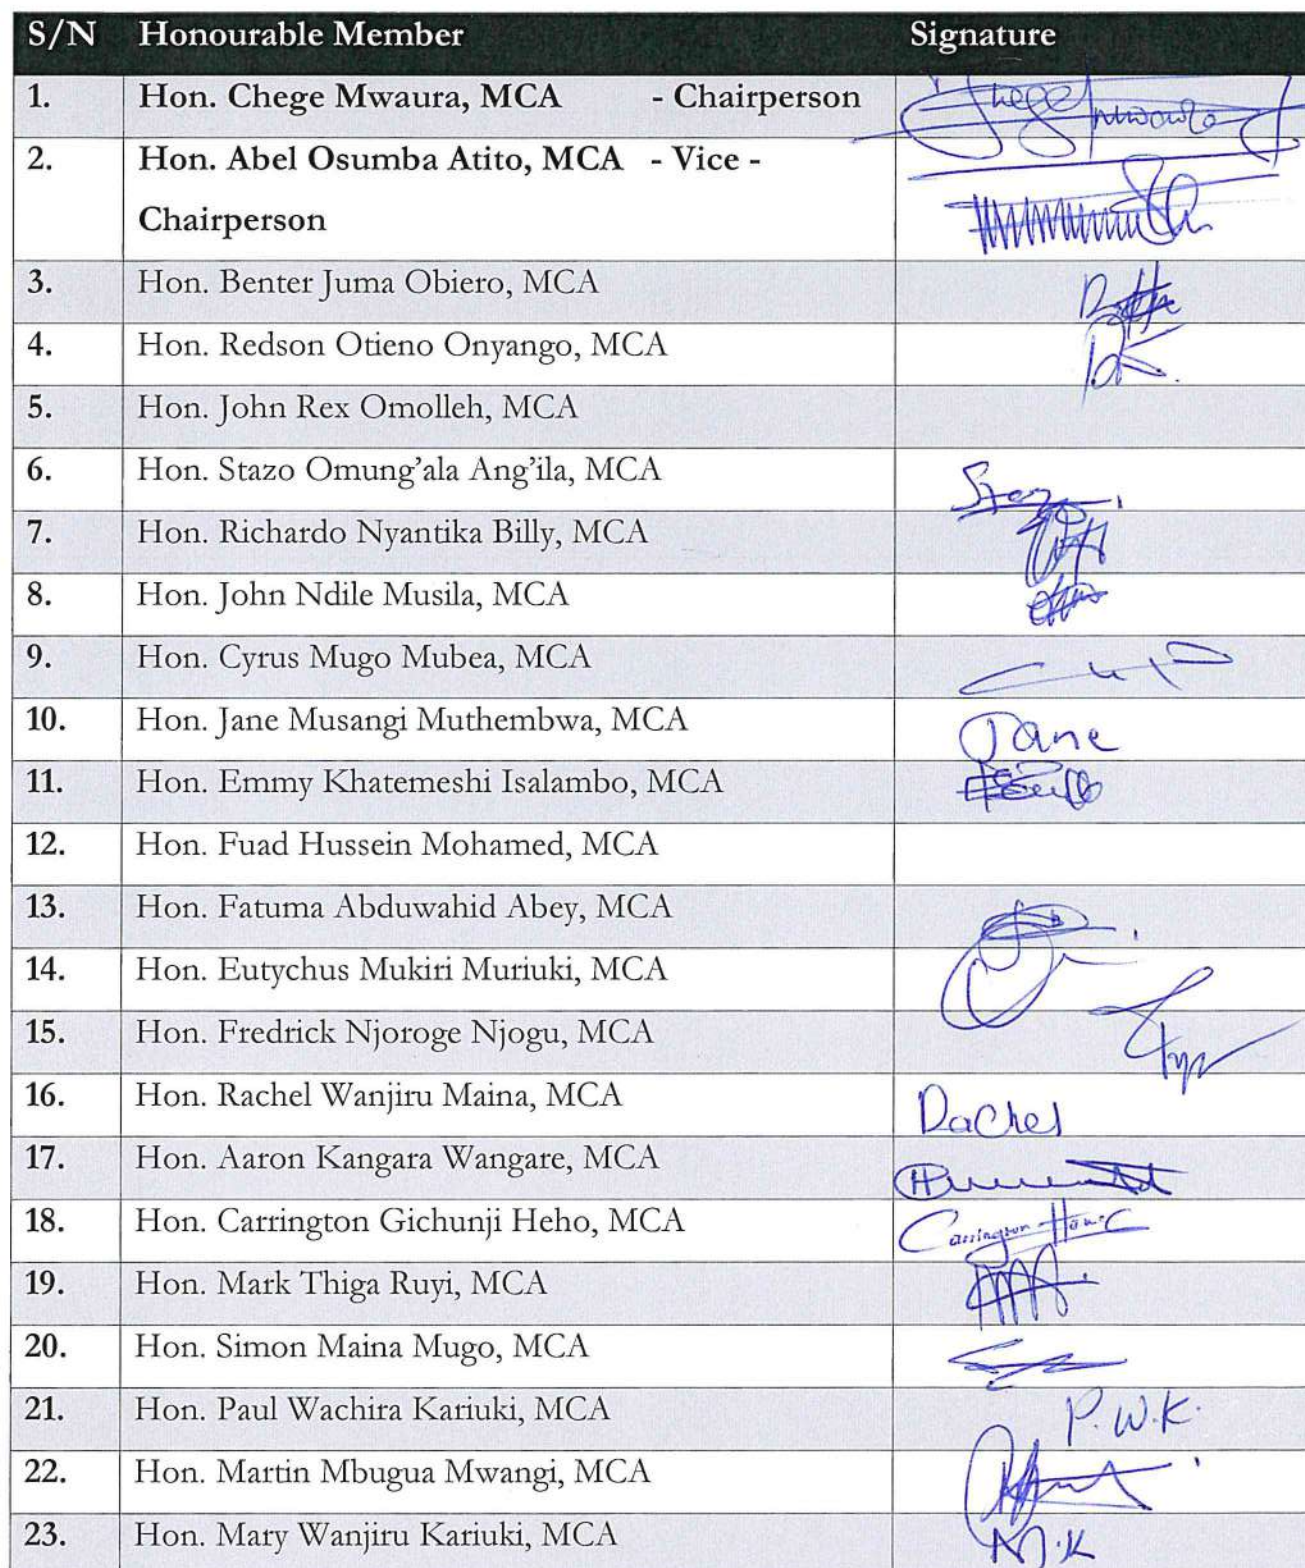 S/N Honourable Member Signature
1. Hon. Chege Mwaura, MCA - Chairperson Chege Mwaura
2. Hon. Abel Osumba Atito, MCA - Vice -
Chairperson
3. Hon. Benter Juma Obiero, MCA
4. Hon. Redson Otieno Onyango, MCA
5. Hon. John Rex Omolleh, MCA
6. Hon. Stazo Omung'ala Ang'ila, MCA
7. Hon. Richardo Nyantika Billy, MCA
8. Hon. John Ndile Musila, MCA
9. Hon. Cyrus Mugo Mubea, MCA
10. Hon. Jane Musangi Muthembwa, MCA Jane
11. Hon. Emmy Khatemeshi Isalambo, MCA
12. Hon. Fuad Hussein Mohamed, MCA
13. Hon. Fatuma Abduwahid Abey, MCA
14. Hon. Eutychus Mukiri Muriuki, MCA
15. Hon. Fredrick Njoroge Njogu, MCA
16. Hon. Rachel Wanjiru Maina, MCA Rachel
17. Hon. Aaron Kangara Wangare, MCA
18. Hon. Carrington Gichunji Heho, MCA Carrington
19. Hon. Mark Thiga Ruyi, MCA
20. Hon. Simon Maina Mugo, MCA
21. Hon. Paul Wachira Kariuki, MCA P.W.K.
22. Hon. Martin Mbugua Mwangi, MCA
23. Hon. Mary Wanjiru Kariuki, MCA M.K